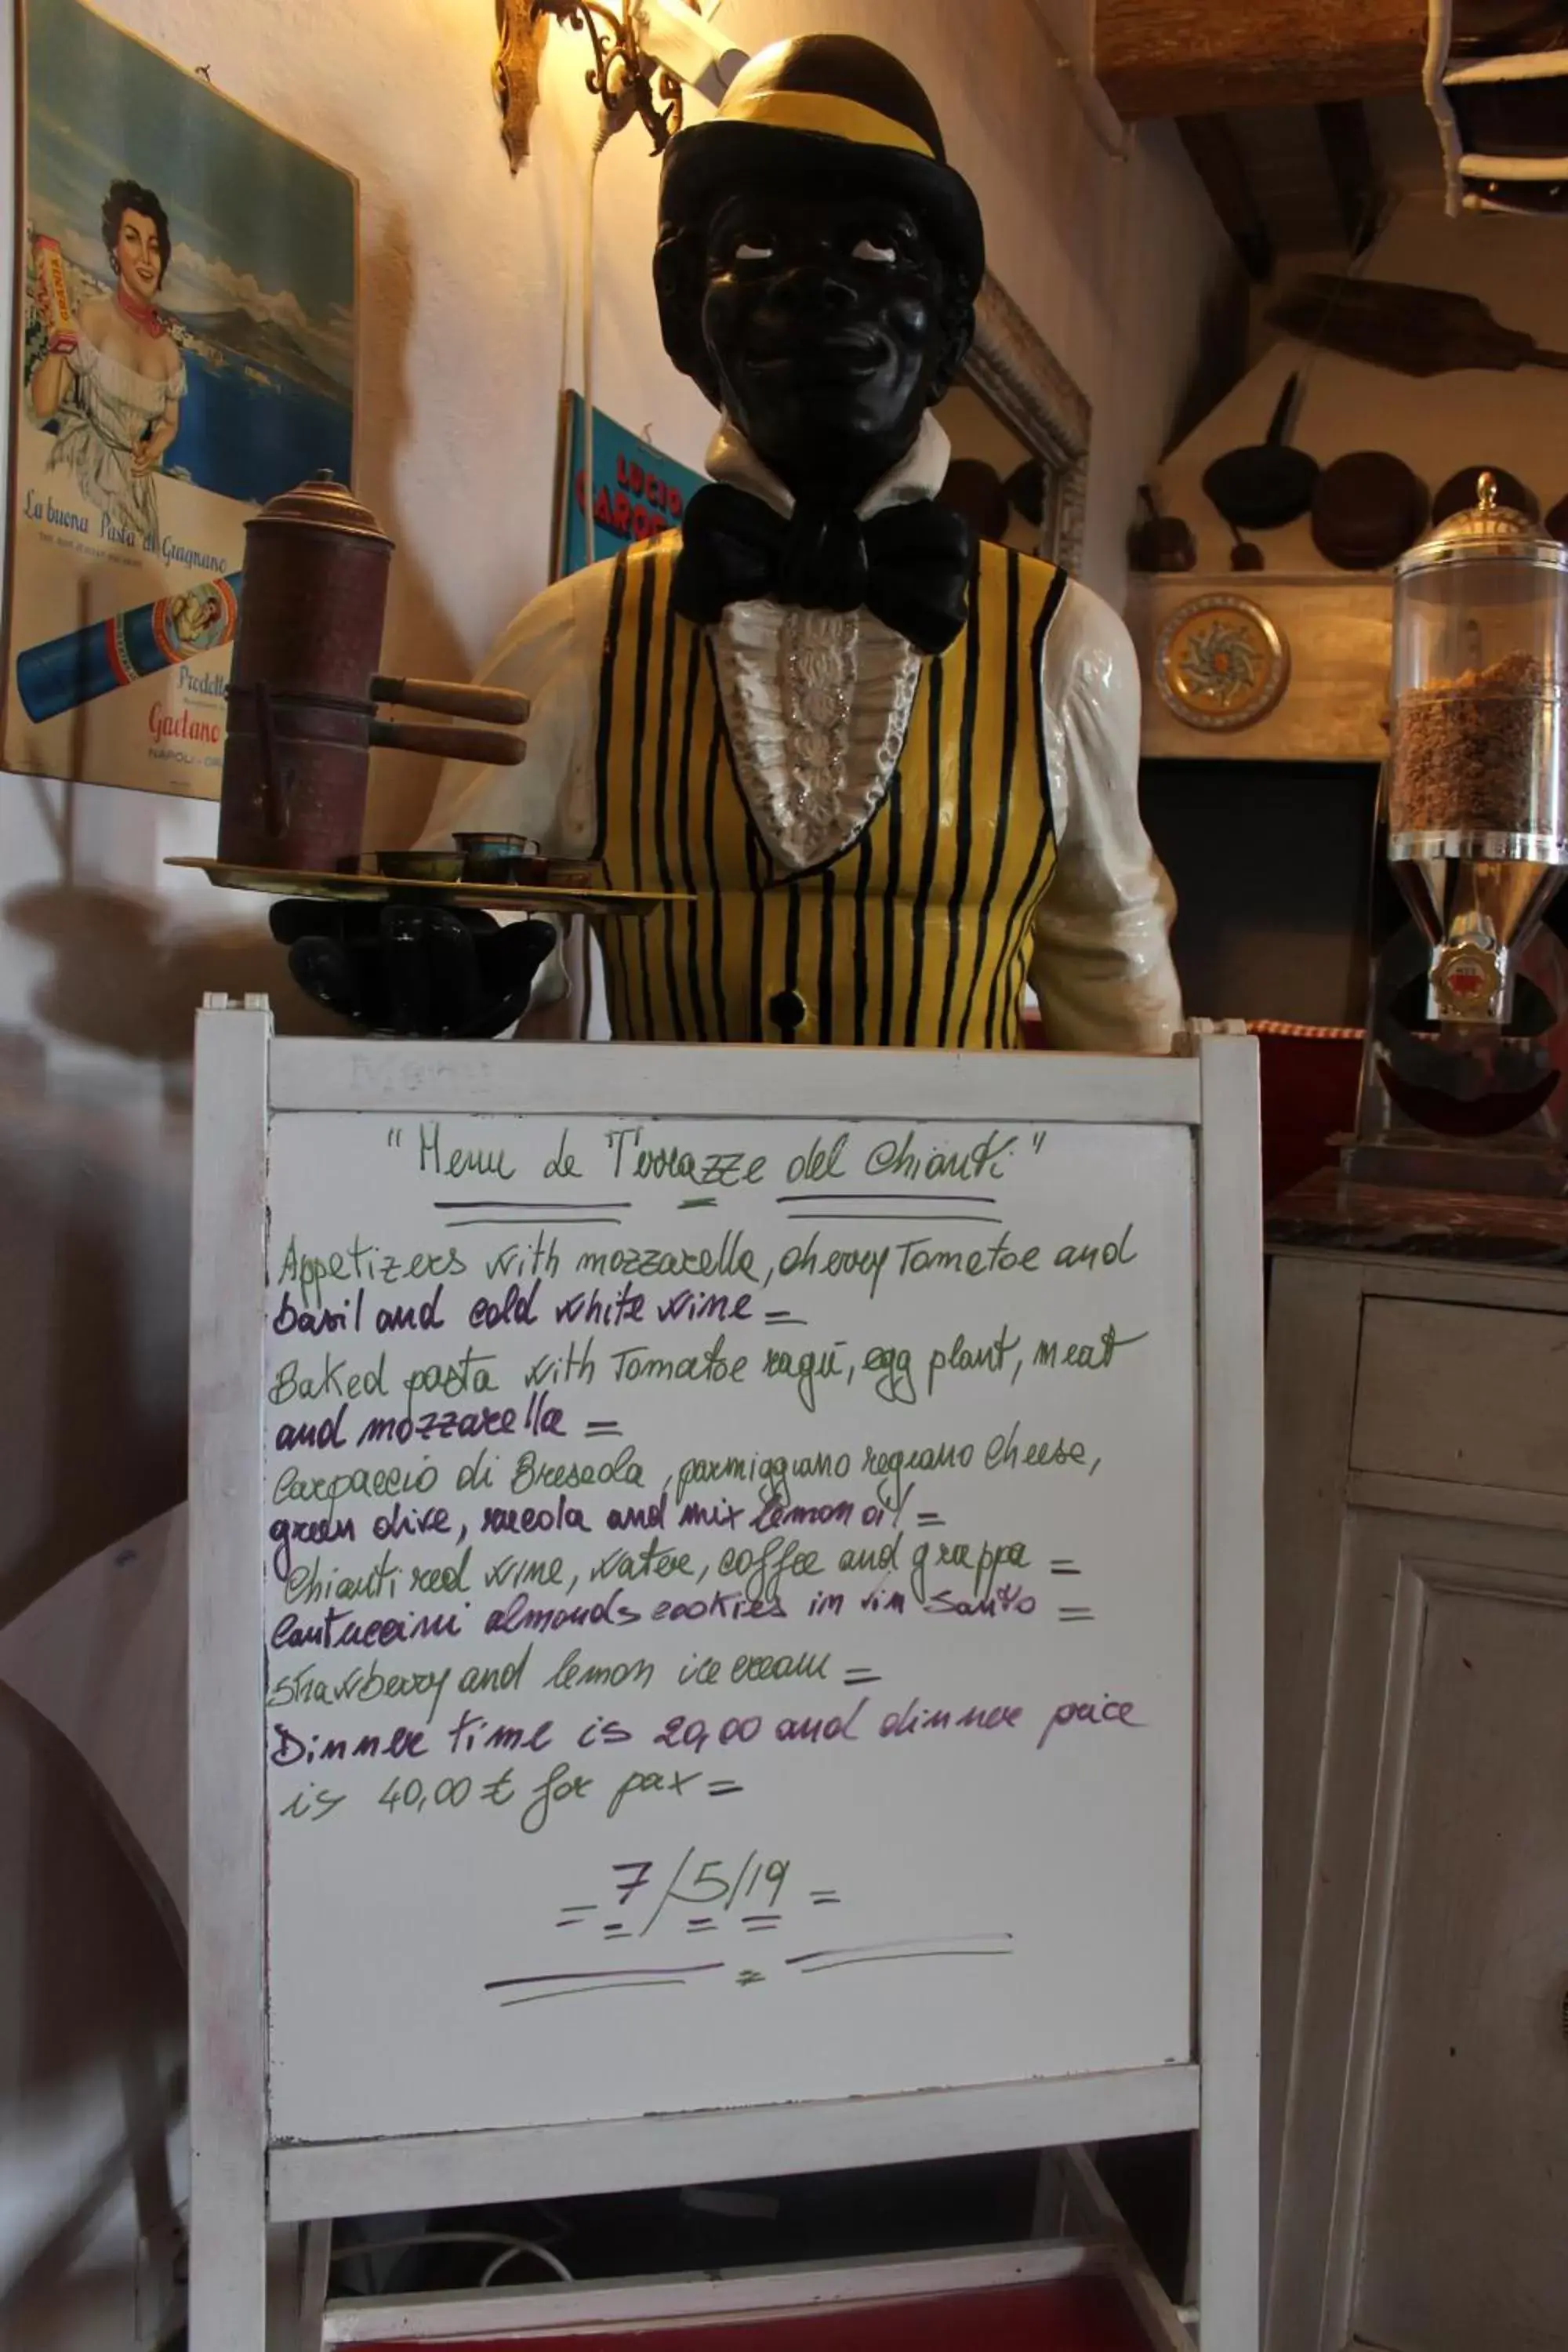 GRANIA
La buona Pasta di Gragnano
Prodotto
Gaetano
NAPOLI-
LUCIO
GARO
Menu
"Menu de Terrazze del Chianti"
Appetizers with mozzarella, cherry Tomatoe and
basil and cold white wine =
Baked pasta with Tomatoe ragù, egg plant, meat
and mozzarella =
Carpaccio di Breseola, parmiggiano regiano cheese,
green olive, rucola and mix lemon oil =
Chianti red wine, water, coffee and grappa =
Cantuccini almonds cookies in vin Santo =
strawberry and lemon ice cream =
Dinner time is 20,00 and dinner price
is 40,00 € for pax =
= 7/5/19 =